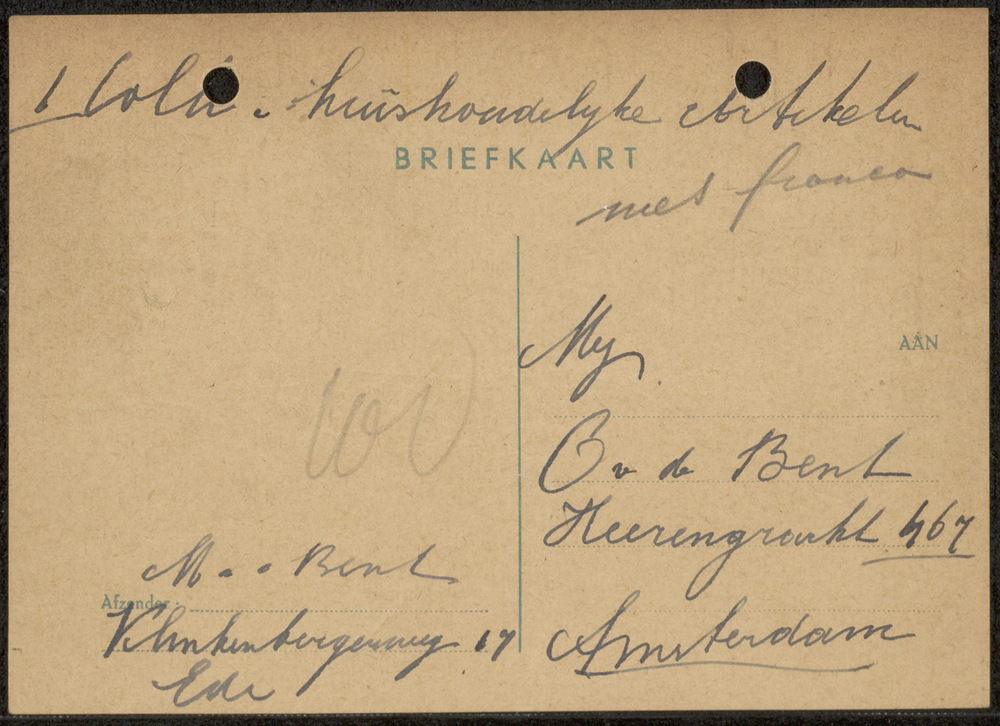 1 Colli. huishoudelyke Artikelen
BRIEFKAART
met franco
AAN
My
O v de Bent
Heerengracht 467
Amsterdam
M. . Bent
Afzender:
Klinkenbergerweg 17
Ede